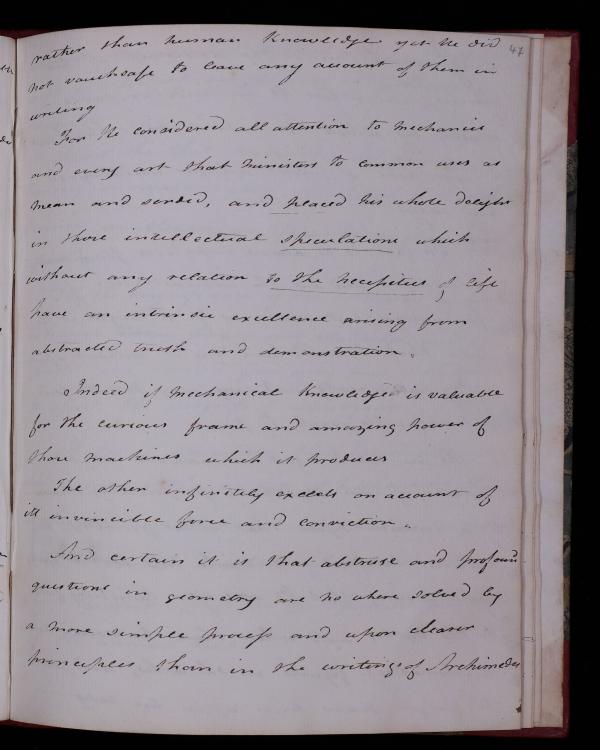 47
rather than human Knowledge yet he did
not vouchsafe to leave any account of them in
writing
For he considered all attention to mechanics
and every art that ministers to common uses as
mean and sordid, and placed his whole delight
in those intellectual speculations which
without any relation to the necessities of life
have an intrinsic excellence arising from
abstracted truth and demonstration.
Indeed if mechanical Knowledge is valuable
for the curious frame and amazing power of
those machines which it produces
The other infinitely excels on account of
its invincible force and conviction.
And certain it is that abstruse and profound
questions in geometry are no where solved by
a more simple process and upon clearer
principles than in the writings of Archimedes